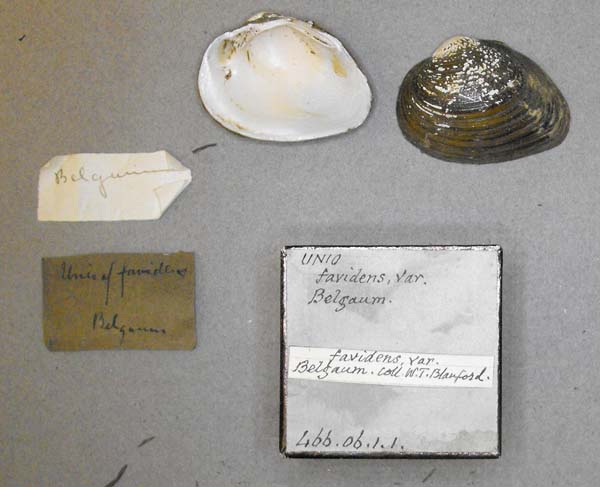 Belgaum
Unio af favidens
Belgaum
UNIO
favidens, var.
Belgaum.
favidens, var.
Belgaum. coll. W.T. Blanford.
466.06.1.1.